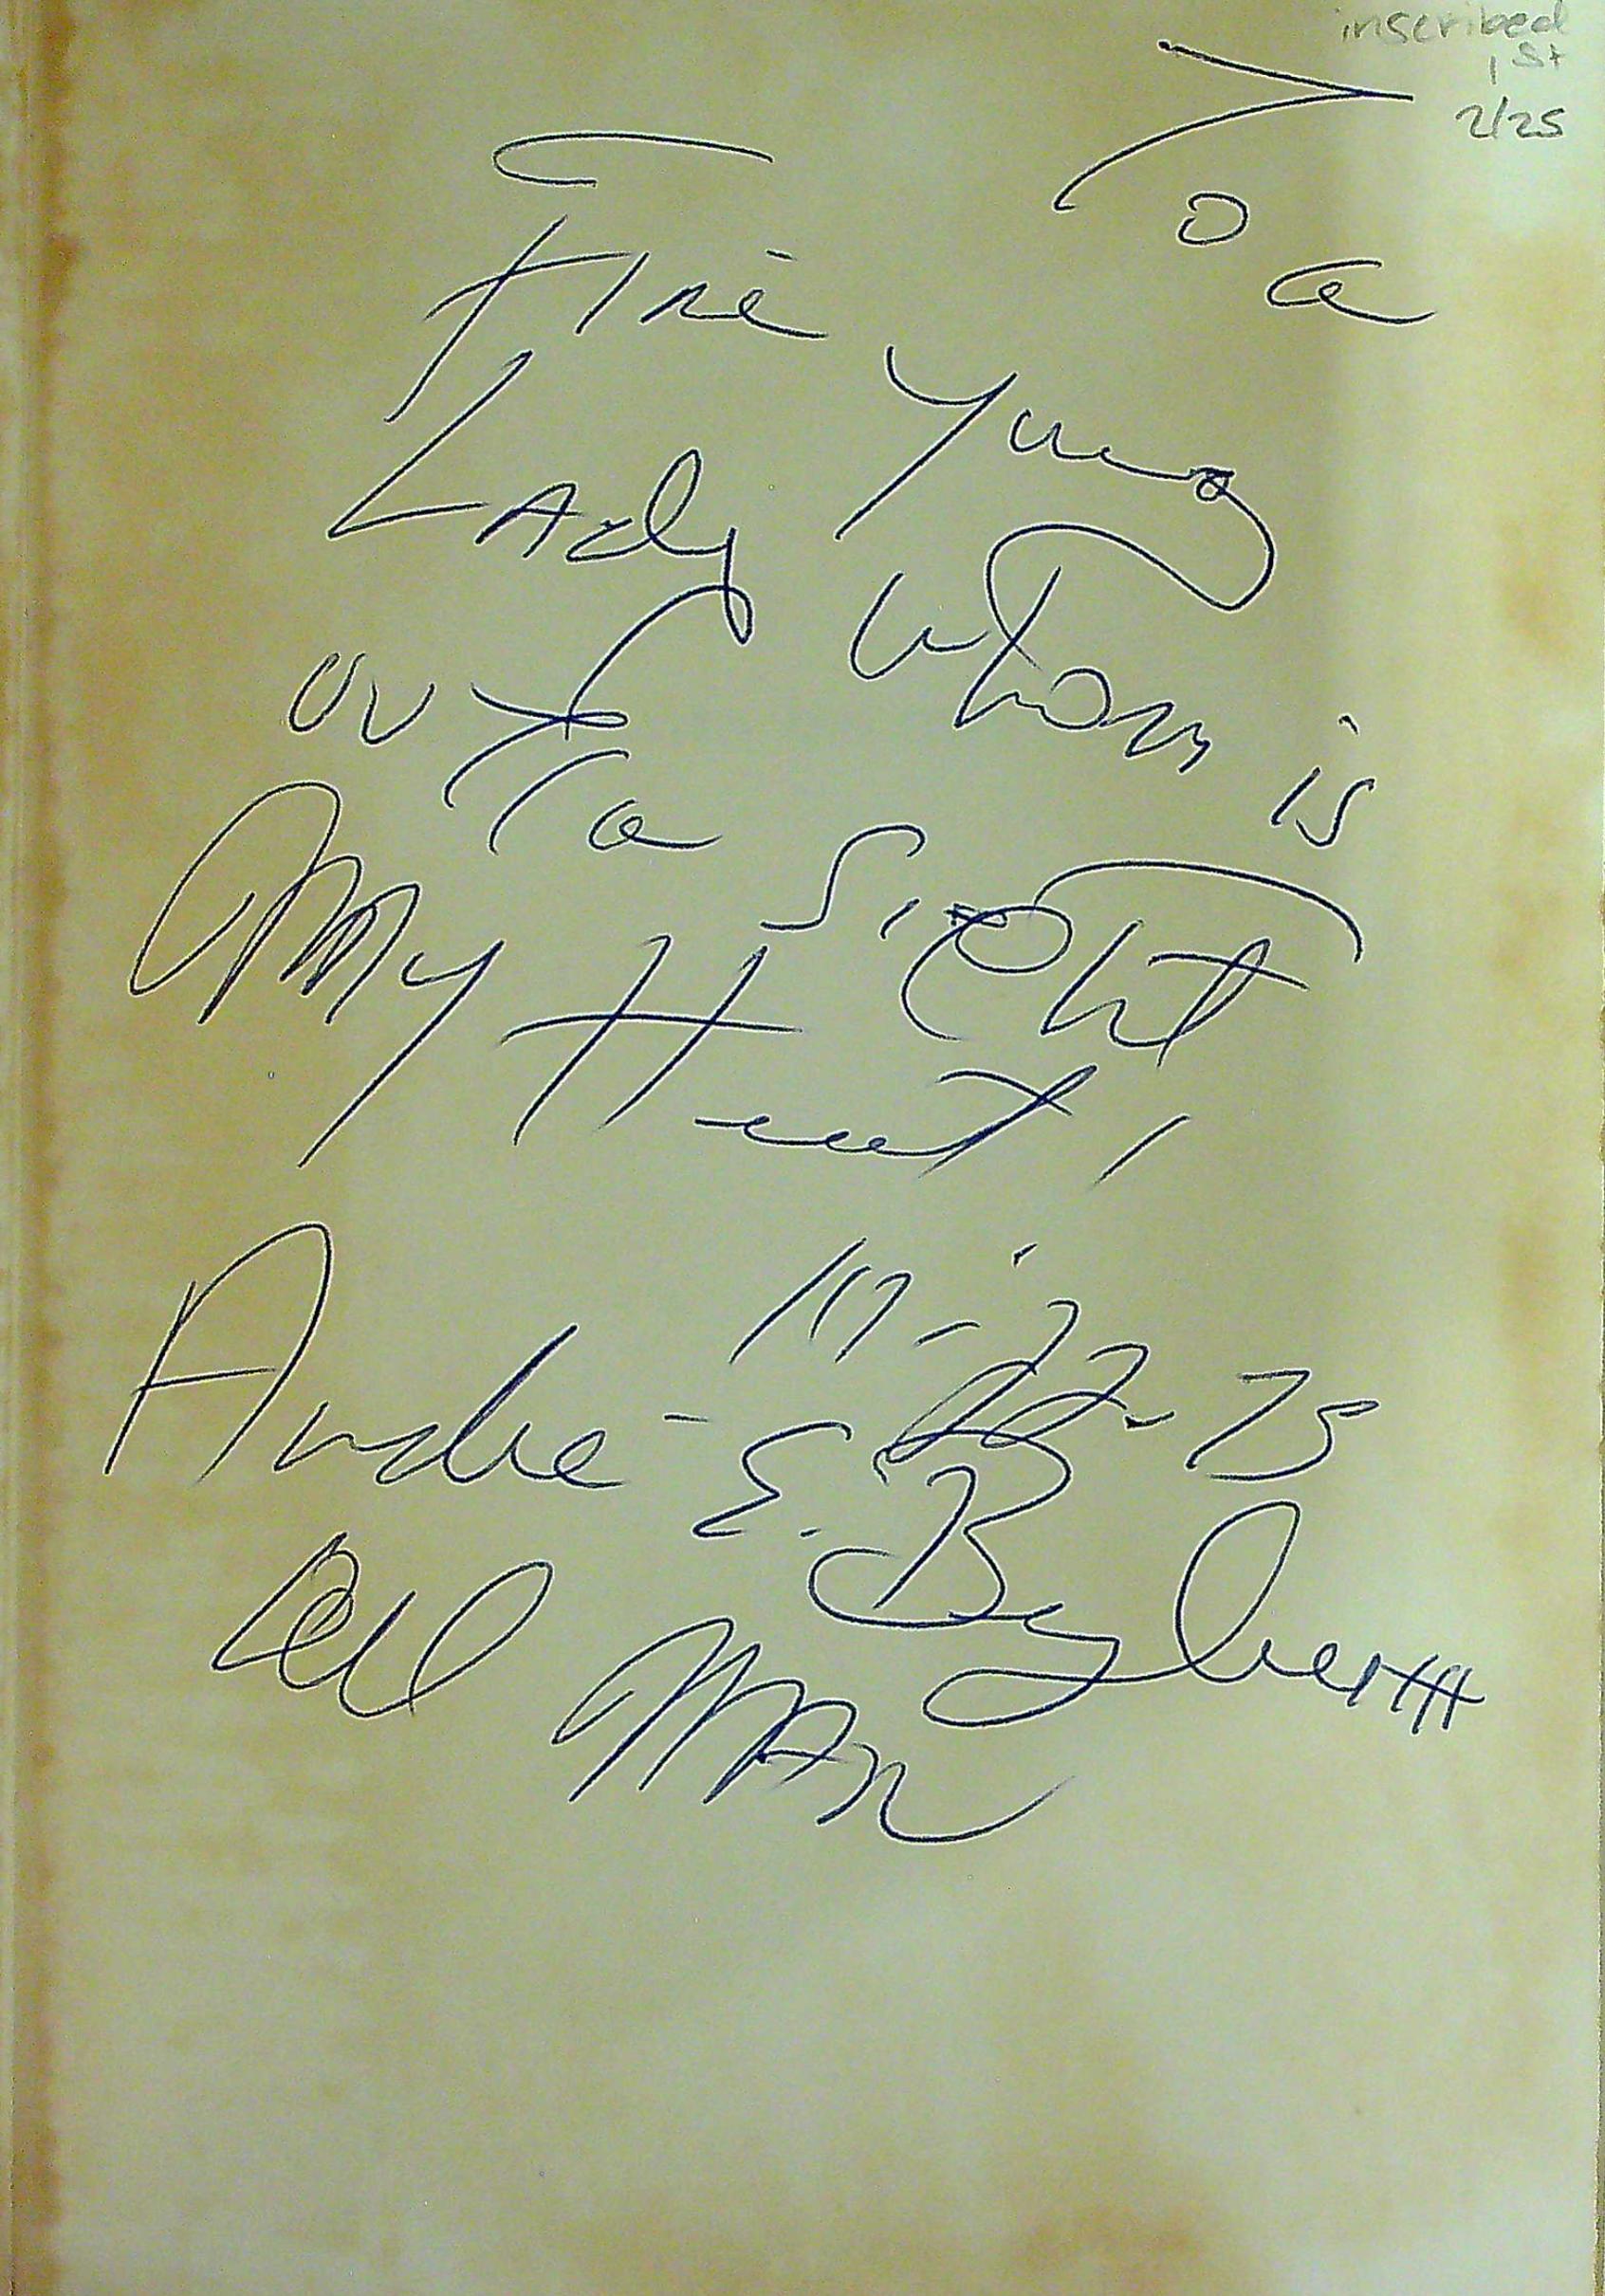 inscribed
1st
2/25
To a
Fine Yung
Lady Whom is
outta Sight
My Heart!
10-22-75
Andre - E.
All Man